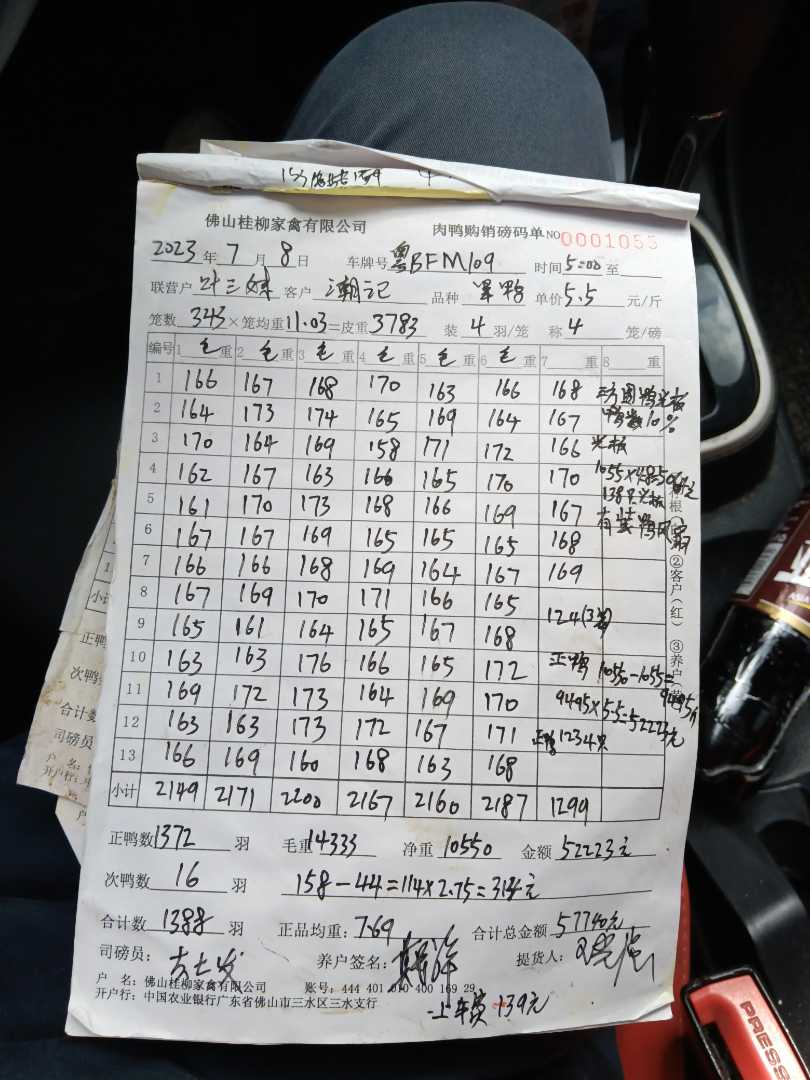 佛山桂柳家禽有限公司 肉鸭购销磅码单 NO 0001055
2023年7月8日 车牌号 粤BFM109 时间 5:00 至
联营户 叶三妹 客户 潮记 品种 单价 5.5 元/斤
笼数 343 ×笼均重 11.03 =皮重 3783 装 4 羽/笼 称 4 笼/磅
编号 1 毛重 2 毛重 3 毛重 4 毛重 5 毛重 6 毛重 7 重 8 重
1 166 167 168 170 163 166 168
2 164 173 174 165 169 164 167 鸭数10%
3 170 164 169 158 171 172 166 光板
4 162 167 163 166 165 170 170
5 161 170 173 168 166 169 167
6 167 167 169 165 165 165 168
7 166 166 168 169 164 167 169
8 167 169 170 171 166 165
9 165 161 164 165 167 168 124(3笼)
10 163 163 176 166 165 172 正鸭 10550-1055=
11 169 172 173 164 169 170 9495×5.5=52223元
9495斤
12 163 163 173 172 167 171 正鸭1234只
13 166 169 160 168 163 168
小计 2149 2171 2200 2167 2160 2187 1299
②客户(红) ③养户
正鸭数 1372 羽 毛重 14333 净重 10550 金额 52223元
次鸭数 16 羽 158-44=114×2.75=314元
合计数 1388 羽 正品均重: 7.69 合计总金额 57740元
司磅员: 养户签名: 提货人:
户 名: 佛山桂柳家禽有限公司 账号: 444 401 010 400 169 29
开户行: 中国农业银行广东省佛山市三水区三水支行
上车费 139元
小计
正鸭
次鸭
合计数
司磅员
户 名:
开户行:
PRESS